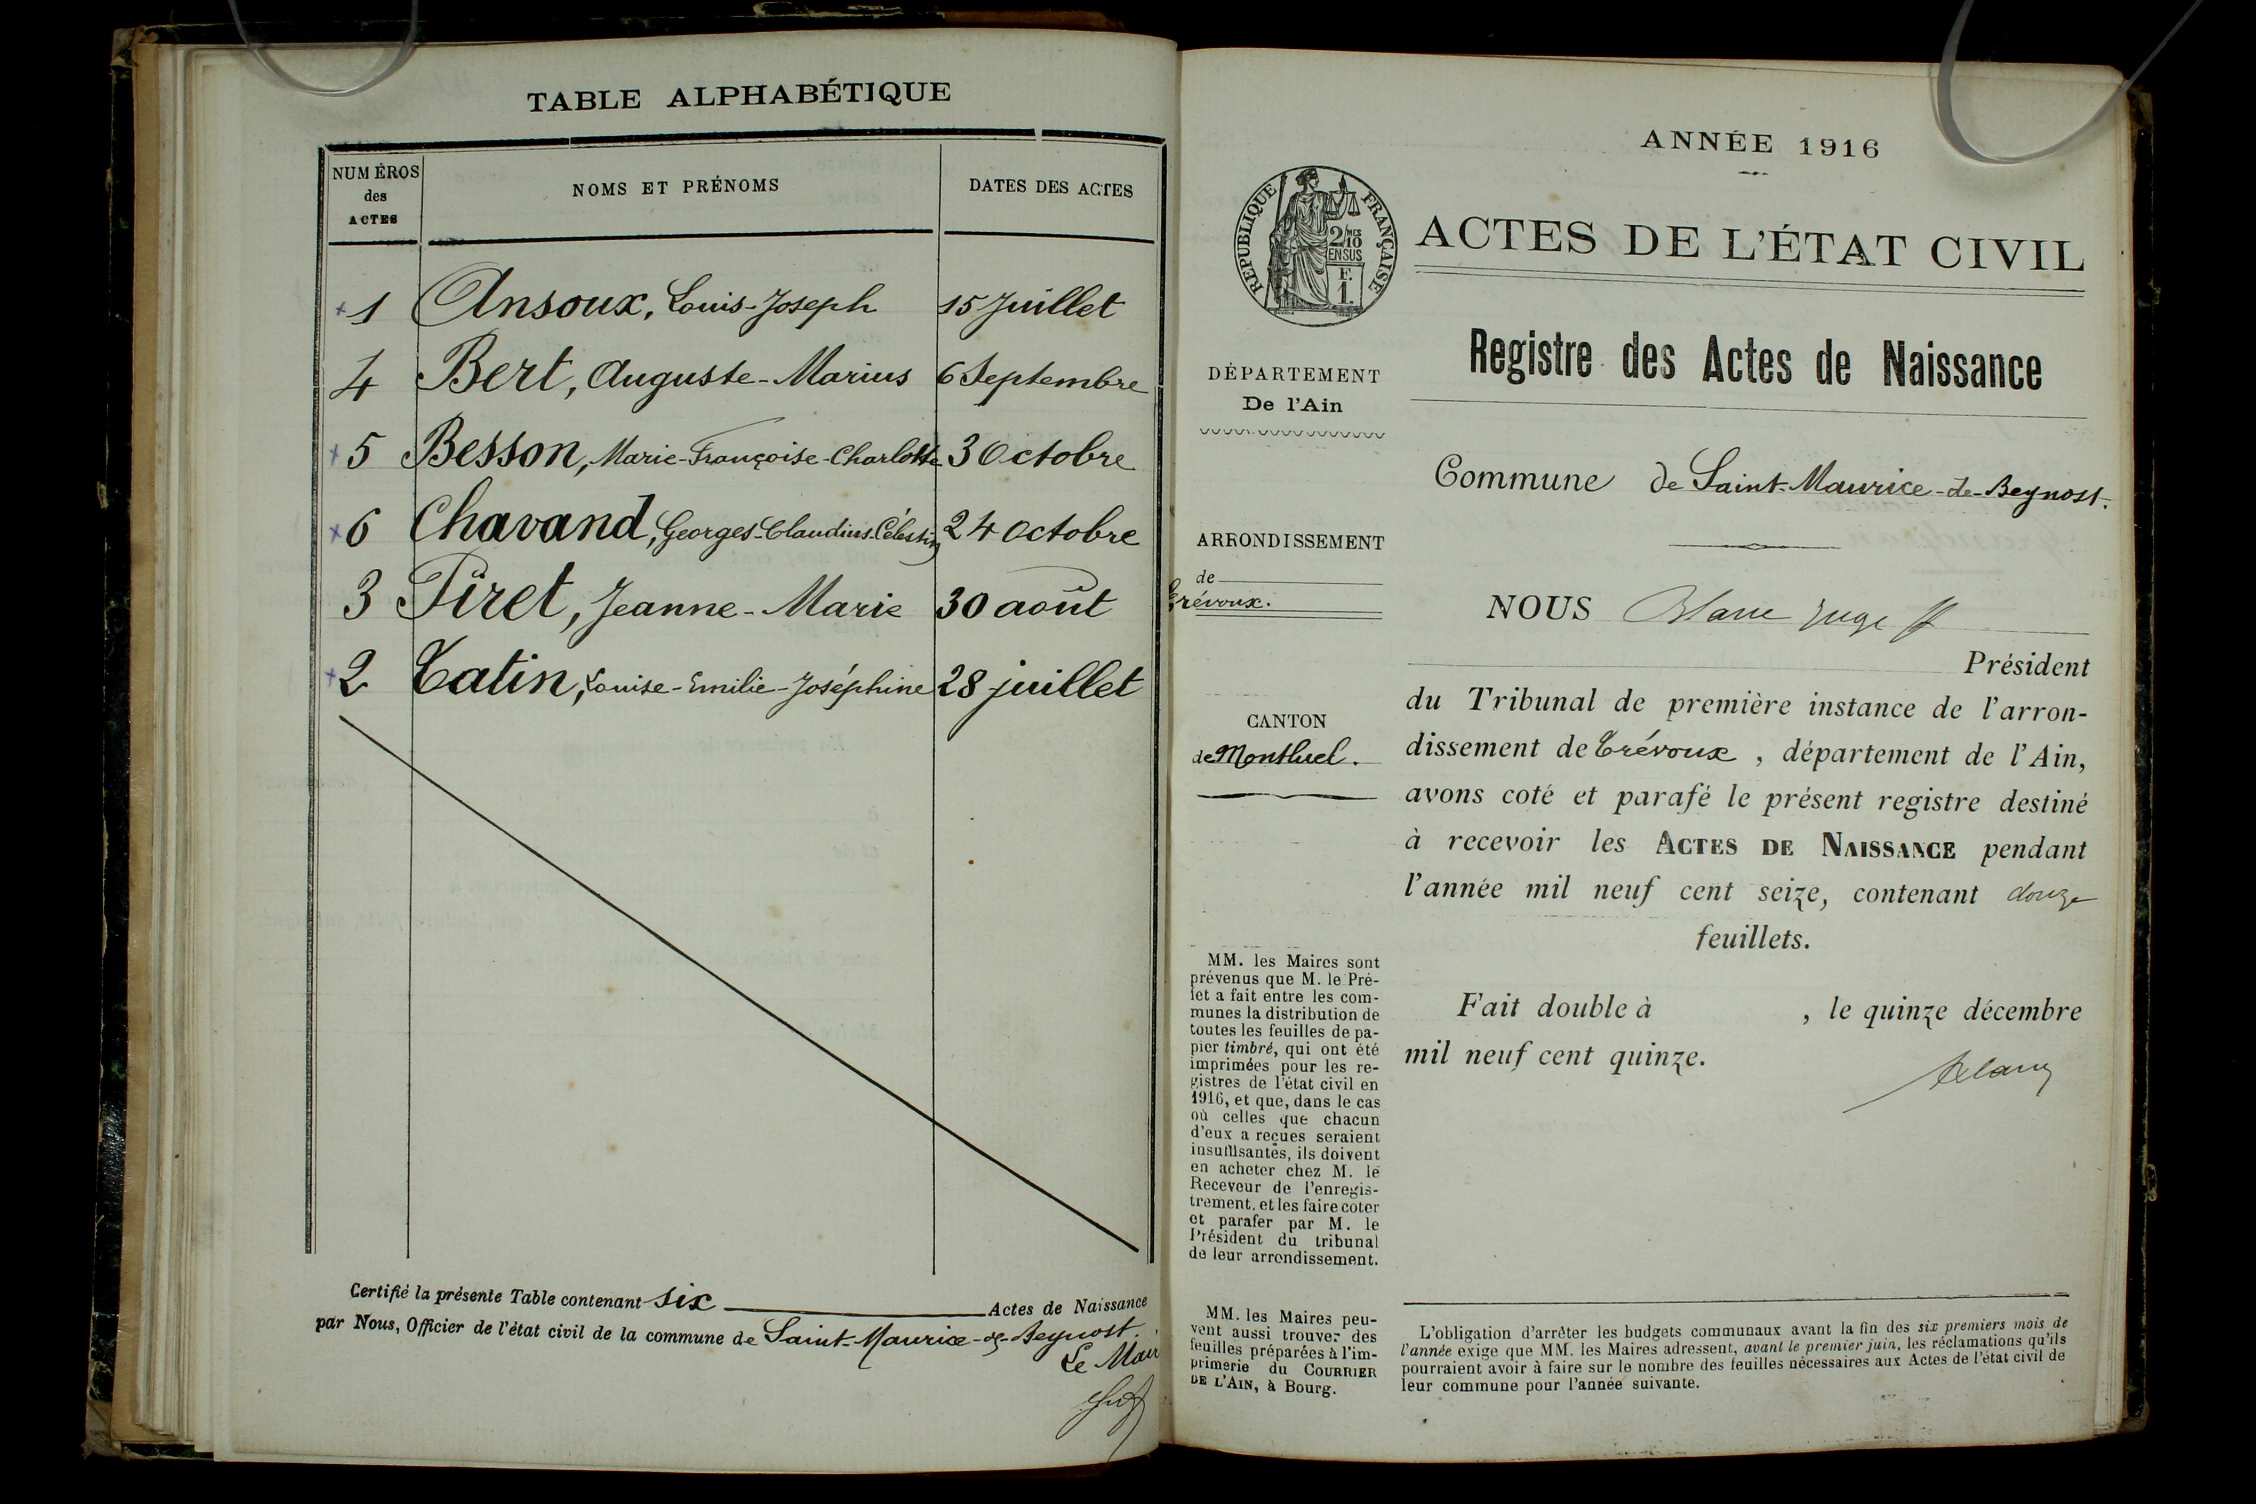 TABLE ALPHABÉTIQUE
NUMÉROS
des
ACTES
NOMS ET PRÉNOMS
DATES DES ACTES
1 Ansoux, Louis-Joseph 15 Juillet
4 Bert, Auguste-Marius 6 Septembre
5 Besson, Marie-Françoise-Charlotte 3 Octobre
6 Chavand, Georges-Claudius-Célestin 24 Octobre
3 Piret, Jeanne-Marie 30 août
2 Tatin, Louise-Emilie-Joséphine 28 juillet
Certifié la présente Table contenant six Actes de Naissance
par Nous, Officier de l'état civil de la commune de Saint-Maurice-de-Beynost.
Le Mair
ANNÉE 1916
RÉPUBLIQUE FRANÇAISE
2/10 MES
EN SUS
F.
1.
ACTES DE L'ÉTAT CIVIL
Registre des Actes de Naissance
DÉPARTEMENT
De l'Ain
Commune de Saint-Maurice-de-Beynost.
ARRONDISSEMENT
de
Trévoux.
CANTON
de Montluel.
NOUS Blanc juge ff
Président
du Tribunal de première instance de l'arron-
dissement de Trévoux, département de l'Ain,
avons coté et parafé le présent registre destiné
à recevoir les ACTES DE NAISSANCE pendant
l'année mil neuf cent seize, contenant douze
feuillets.
Fait double à , le quinze décembre
mil neuf cent quinze.
Blanc
MM. les Maires sont
prévenus que M. le Pré-
fet a fait entre les com-
munes la distribution de
toutes les feuilles de pa-
pier timbré, qui ont été
imprimées pour les re-
gistres de l'état civil en
1916, et que, dans le cas
où celles que chacun
d'eux a reçues seraient
insuffisantes, ils doivent
en acheter chez M. le
Receveur de l'enregis-
trement, et les faire coter
et parafer par M. le
Président du tribunal
de leur arrondissement.
MM. les Maires peu-
vent aussi trouver des
feuilles préparées à l'im-
primerie du COURRIER
DE L'AIN, à Bourg.
L'obligation d'arrêter les budgets communaux avant la fin des six premiers mois de
l'année exige que MM. les Maires adressent, avant le premier juin, les réclamations qu'ils
pourraient avoir à faire sur le nombre des feuilles nécessaires aux Actes de l'état civil de
leur commune pour l'année suivante.